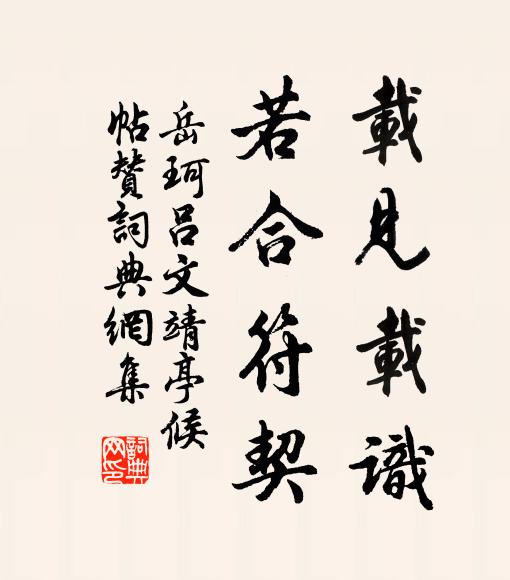 載見載識
若合符契
岳珂呂文靖亭候
帖贊詞典網集
詞典網印